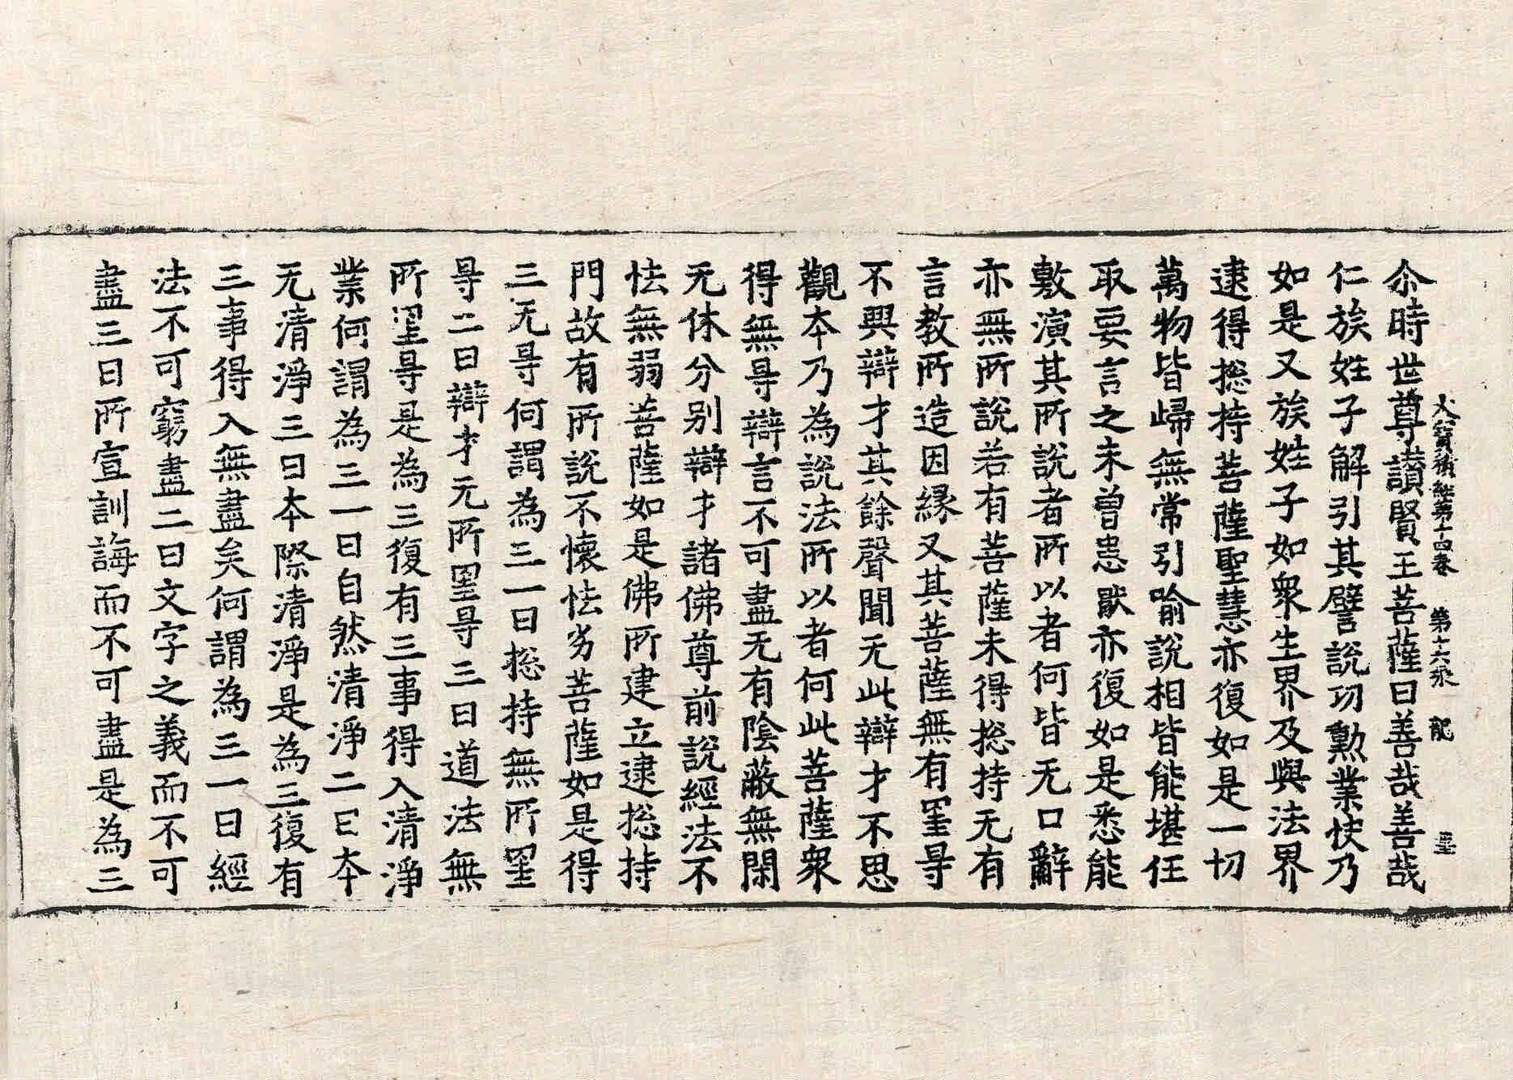 大寶積經第十四卷 第十六張 龍
尒時世尊讃賢王菩薩曰善哉善哉
仁族姓子解引其譬說功勲業快乃
如是又族姓子如衆生界及與法界
逮得捴持菩薩聖慧亦復如是一切
萬物皆歸無常引喻說相皆能堪任
取要言之未曾患猒亦復如是悉能
敷演其所說者所以者何皆无口辭
亦無所說若有菩薩未得捴持无有
言教所造因緣又其菩薩無有罣㝵
不興辯才其餘聲聞无此辯才不思
觀本乃為說法所以者何此菩薩衆
得無㝵辯言不可盡无有陰蔽無閡
无休分別辯才諸佛尊前說經法不
怯無弱菩薩如是佛所建立逮捴持
門故有所說不懷怯劣菩薩如是得
三无㝵何謂為三一曰捴持無所罣
㝵二曰辯才无所罣㝵三曰道法無
所罣㝵是為三復有三事得入清淨
業何謂為三一曰自然清淨二曰本
无清淨三曰本際清淨是為三復有
三事得入無盡矣何謂為三一曰經
法不可窮盡二曰文字之義而不可
盡三曰所宣訓誨而不可盡是為三